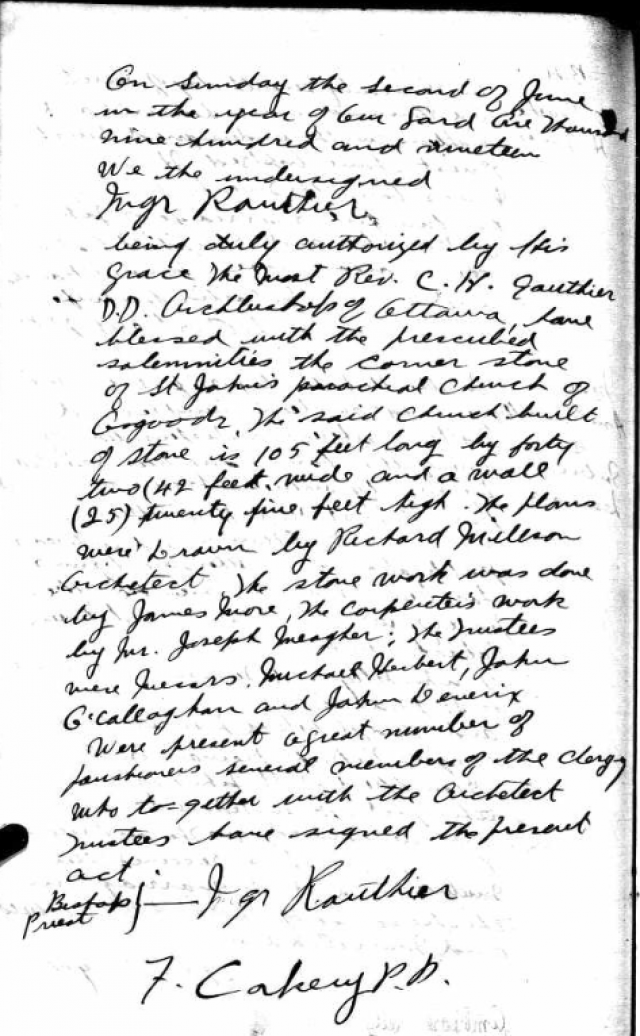 On Sunday the second of June
in the year of Our Lord One thousand
nine hundred and nineteen
We the undersigned
Mgr Routhier
being duly authorized by His
Grace The Most Rev. C. H. Gauthier
D.D. Archbishop of Ottawa, have
blessed with the prescribed
solemnities the corner stone
of St John's parochial Church of
Osgoode. The said Church built
of stone is 105 feet long by forty
two (42 feet. wide and a wall
(25) twenty five feet high. The plans
were drawn by Richard Millson
Architect. The stone work was done
by James More, The carpenter's work
by Mr. Joseph Meagher; The Trustees
were Messrs. Michael Herbert, John
O'Callaghan and John
Were present a great number of
parishioners several members of the clergy
who to=gether with the Architect
Trustees have signed the present
act.
Priest } — Mgr Routhier
F. P.P.